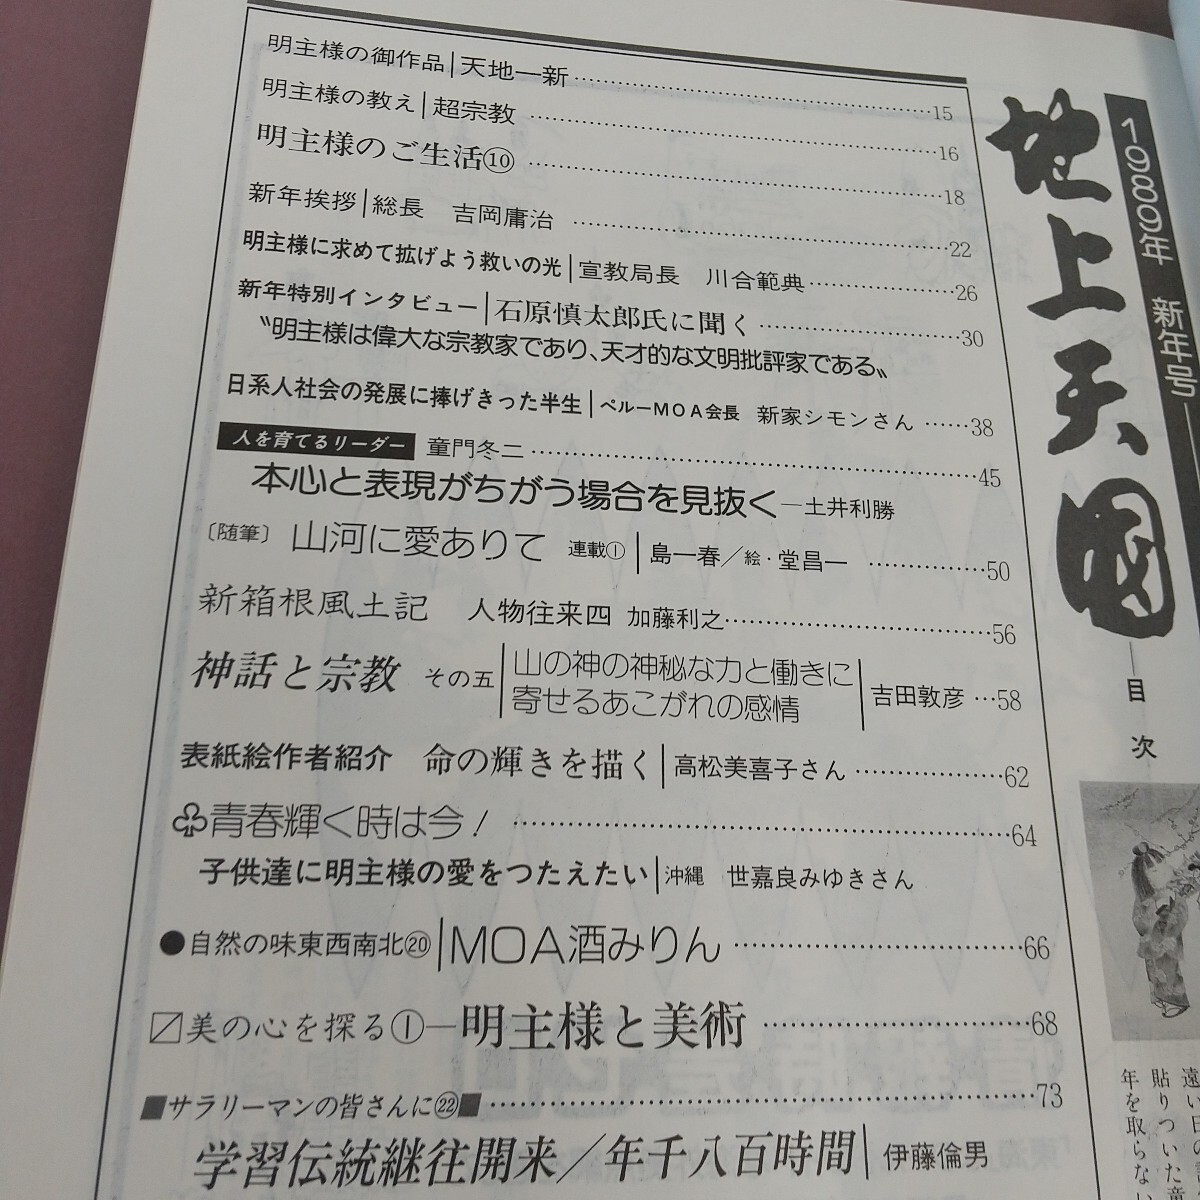 1989年 新年号
地上天國
目次
明主様の御作品|天地一新……15
明主様の教え|超宗教……16
明主様のご生活⑩……18
新年挨拶|総長 吉岡庸治……22
明主様に求めて拡げよう救いの光|宣教局長 川合範典……26
新年特別インタビュー|石原慎太郎氏に聞く……30
〝明主様は偉大な宗教家であり、天才的な文明批評家である〟
日系人社会の発展に捧げきった半生|ペルーMOA会長 新家シモンさん……38
人を育てるリーダー 童門冬二……45
本心と表現がちがう場合を見抜く―土井利勝
〔随筆〕 山河に愛ありて 連載①|島一春／絵・堂昌一……50
新箱根風土記 人物往来四 加藤利之……56
神話と宗教 その五|山の神の神秘な力と働きに
寄せるあこがれの感情|吉田敦彦…58
表紙絵作者紹介 命の輝きを描く|高松美喜子さん……62
♧青春輝く時は今！……64
子供達に明主様の愛をつたえたい|沖縄 世嘉良みゆきさん
●自然の味東西南北⑳|MOA酒みりん……66
〼美の心を探る①―明主様と美術……68
■サラリーマンの皆さんに㉒■……73
学習伝統継往開来／年千八百時間|伊藤倫男
貼りついた童
年を取らない